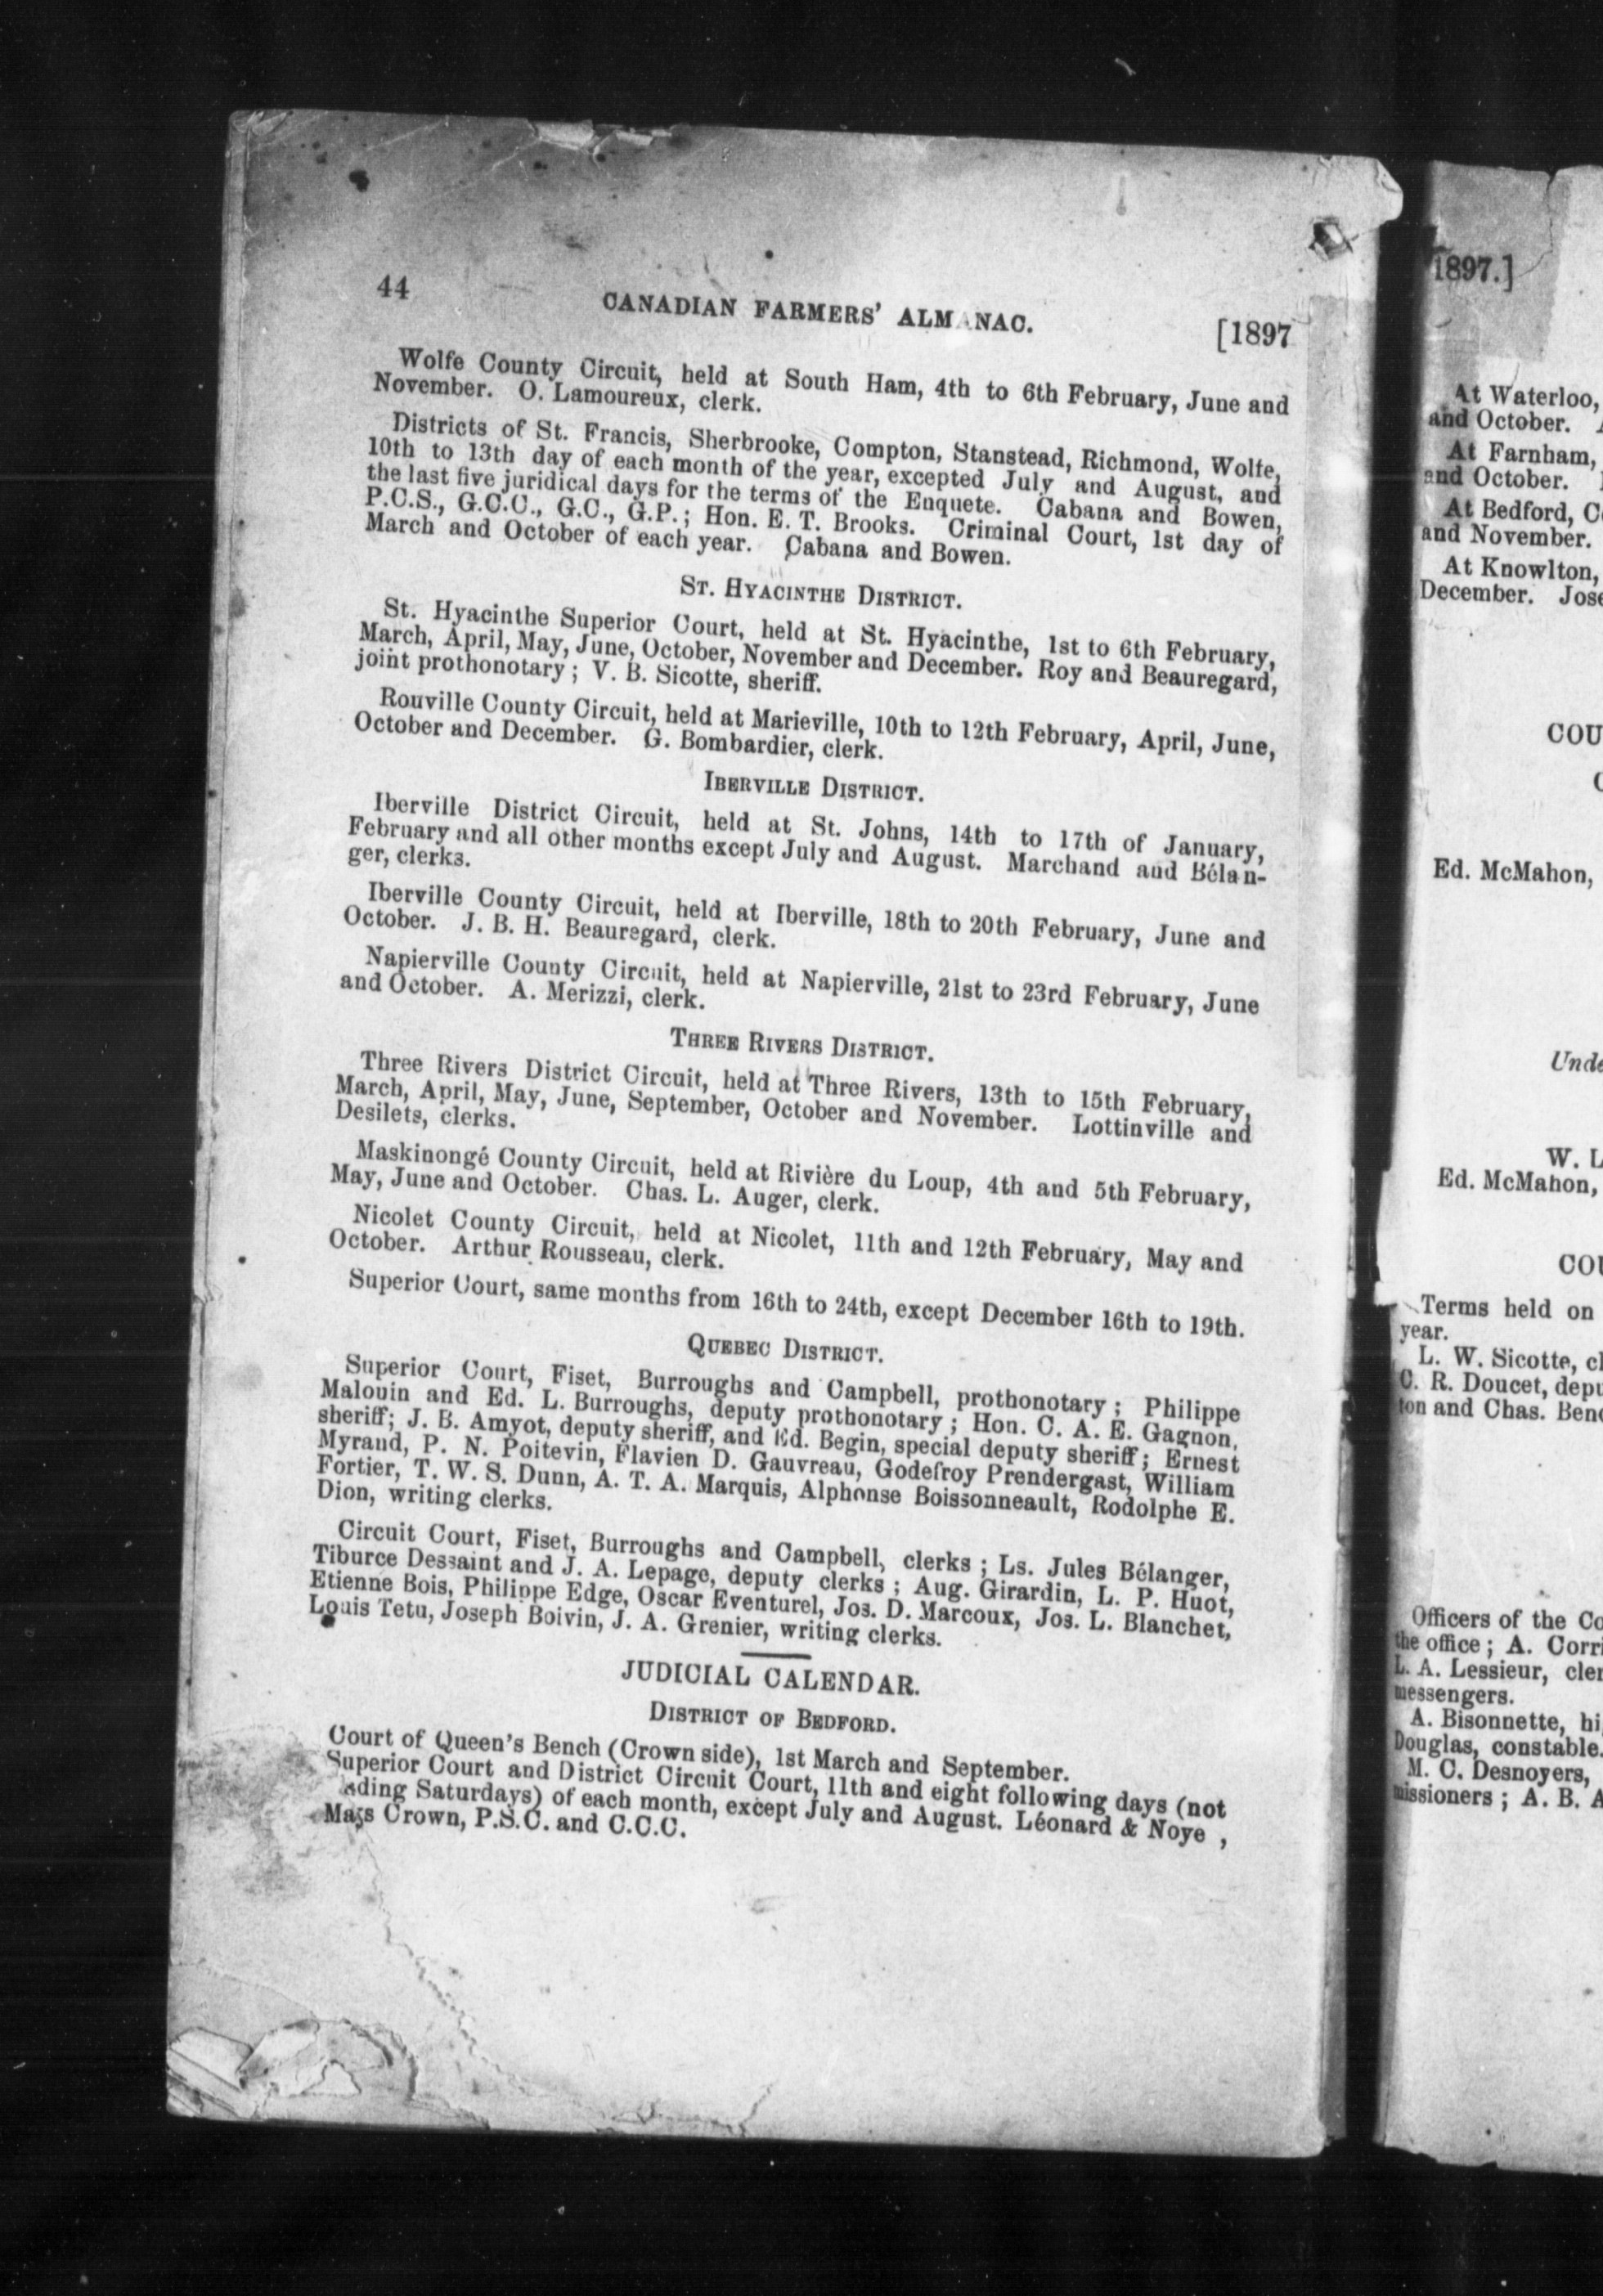 44
CANADIAN FARMERS' ALMANAC.
[1897
Wolfe County Circuit, held at South Ham, 4th to 6th February, June and
November. O. Lamoureux, clerk.
Districts of St. Francis, Sherbrooke, Compton, Stanstead, Richmond, Wolfe,
10th to 13th day of each month of the year, excepted July and August, and
the last five juridical days for the terms of the Enquete. Cabana and Bowen,
P.C.S., G.C.C., G.C., G.P.; Hon. E. T. Brooks. Criminal Court, 1st day of
March and October of each year. Cabana and Bowen.
ST. HYACINTHE DISTRICT.
St. Hyacinthe Superior Court, held at St. Hyacinthe, 1st to 6th February,
March, April, May, June, October, November and December. Roy and Beauregard,
joint prothonotary; V. B. Sicotte, sheriff.
Rouville County Circuit, held at Marieville, 10th to 12th February, April, June,
October and December. G. Bombardier, clerk.
IBERVILLE DISTRICT.
Iberville District Circuit, held at St. Johns, 14th to 17th of January,
February and all other months except July and August. Marchand and Bélan-
ger, clerks.
Iberville County Circuit, held at Iberville, 18th to 20th February, June and
October. J. B. H. Beauregard, clerk.
Napierville County Circuit, held at Napierville, 21st to 23rd February, June
and October. A. Merizzi, clerk.
THREE RIVERS DISTRICT.
Three Rivers District Circuit, held at Three Rivers, 13th to 15th February,
March, April, May, June, September, October and November. Lottinville and
Desilets, clerks.
Maskinongé County Circuit, held at Rivière du Loup, 4th and 5th February,
May, June and October. Chas. L. Auger, clerk.
Nicolet County Circuit, held at Nicolet, 11th and 12th February, May and
October. Arthur Rousseau, clerk.
Superior Court, same months from 16th to 24th, except December 16th to 19th.
QUEBEC DISTRICT.
Superior Court, Fiset, Burroughs and Campbell, prothonotary; Philippe
Malouin and Ed. L. Burroughs, deputy prothonotary; Hon. C. A. E. Gagnon,
sheriff; J. B. Amyot, deputy sheriff, and Ed. Begin, special deputy sheriff; Ernest
Myrand, P. N. Poitevin, Flavien D. Gauvreau, Godefroy Prendergast, William
Fortier, T. W. S. Dunn, A. T. A. Marquis, Alphonse Boissonneault, Rodolphe E.
Dion, writing clerks.
Circuit Court, Fiset, Burroughs and Campbell, clerks; Ls. Jules Bélanger,
Tiburce Dessaint and J. A. Lepage, deputy clerks; Aug. Girardin, L. P. Huot,
Etienne Bois, Philippe Edge, Oscar Eventurel, Jos. D. Marcoux, Jos. L. Blanchet,
Louis Tetu, Joseph Boivin, J. A. Grenier, writing clerks.
JUDICIAL CALENDAR.
DISTRICT OF BEDFORD.
Court of Queen's Bench (Crown side), 1st March and September.
Superior Court and District Circuit Court, 11th and eight following days (not
Saturdays) of each month, except July and August. Léonard & Noye,
Crown, P.S.C. and C.C.C.
1897.]
At Waterloo,
and October.
At Farnham,
and October.
At Bedford,
and November.
At Knowlton,
December.
COU
Ed. McMahon,
Unde
W. L
Ed. McMahon,
COU
Terms held on
year.
L. W. Sicotte, cl
C. R. Doucet, depu
ton and Chas. Beno
Officers of the Co
the office; A. Corri
L. A. Lessieur, cler
messengers.
A. Bisonnette, hi
Douglas, constable.
M. C. Desnoyers,
missioners; A. B. A